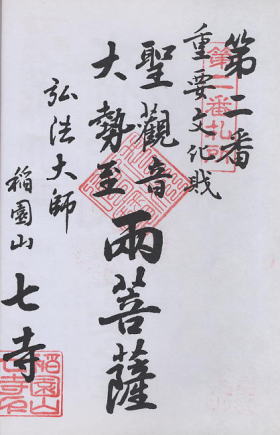 第二番
重要文化賎
聖觀音
大勢至
兩菩薩
弘法大師
稲園山
七寺
第二番札所
稲園山
七寺印